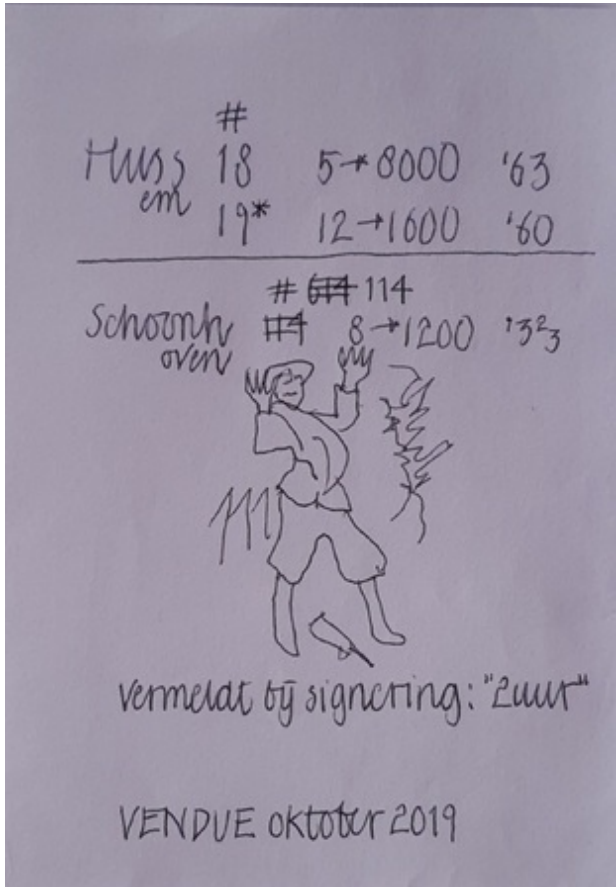 #
Hussem 18 5→8000 '63
19* 12→1600 '60
# 114
Schoonhoven 8→1200 '3
vermeldt bij signering: "2uur"
VENDUE oktober 2019